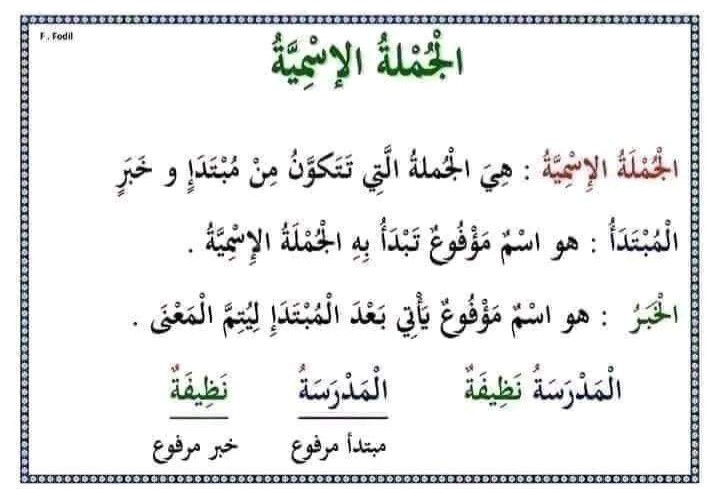 F . Fodil
الْجُمْلةُ الإسْمِيَّةُ
الْجُمْلَةُ الإسْمِيَّةُ : هِيَ الْجُملةُ الَّتِي تَتَكوَّنُ مِنْ مُبْتَدَإٍ و خَبَرٍ
الْمُبْتَدَأُ : هو اسْمٌ مَرْفُوعٌ تَبْدَأُ بِهِ الْجُمْلَةُ الإسْمِيَّةُ .
الْخَبَرُ : هو اسْمٌ مَرْفُوعٌ يَأْتِي بَعْدَ الْمُبْتَدَإِ لِيُتِمَّ الْمَعْنَى .
الْمَدْرَسَةُ نَظِيفَةٌ الْمَدْرَسَةُ نَظِيفَةٌ
مبتدأ مرفوع خبر مرفوع